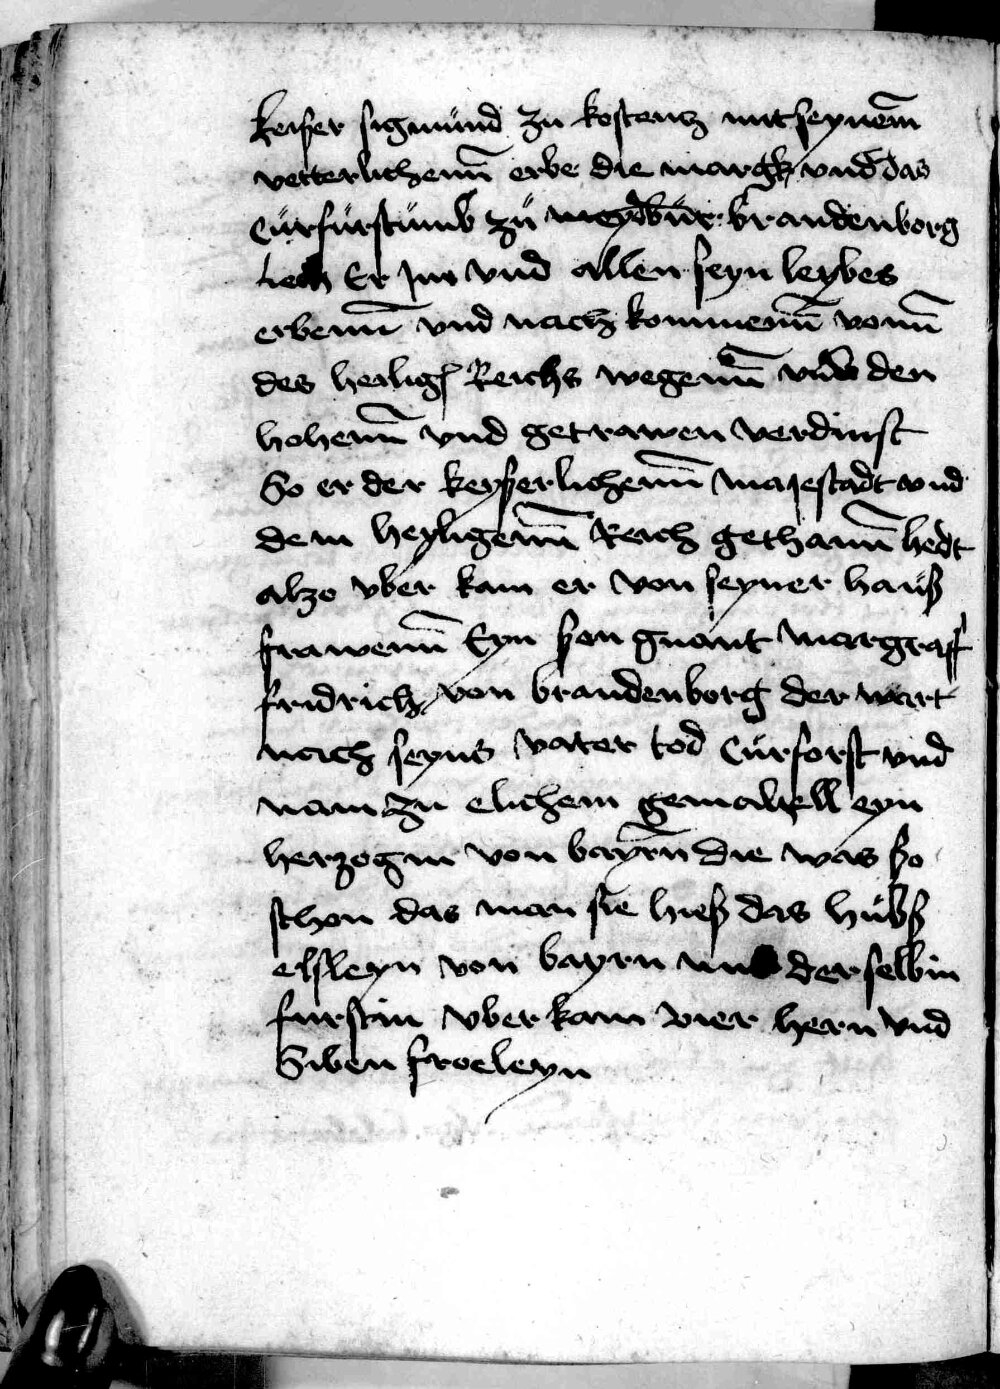 keiser sigmund zu kostentz mit seynem
vetterlichenn erbe die margk vnd das
Cürfürstumb zü meydbür brandenborg
liech Er Im vnd allen seyn leybes
erbenn vnd nach kommenn vonn
des heilig Reichs wegenn vmb den
hohenn vnd getrawen verdinst
So er der keyserlichenn maiestadt vnd
dem heyligenn Reich gethann hedt
alzo vber kam er von seyner hauß
frawenn Eyn son gnant margraff
fridrich von brandenborg der wart
nach seyns vater tod Cürforst vnd
nam zu elichem gemahell eyn
herzogin von bayrn die was so
schon das man sie hieß das hübß
elsleyn von bayrn mit der selbin
furstin vber kam vier hern vnd
Siben froeleyn